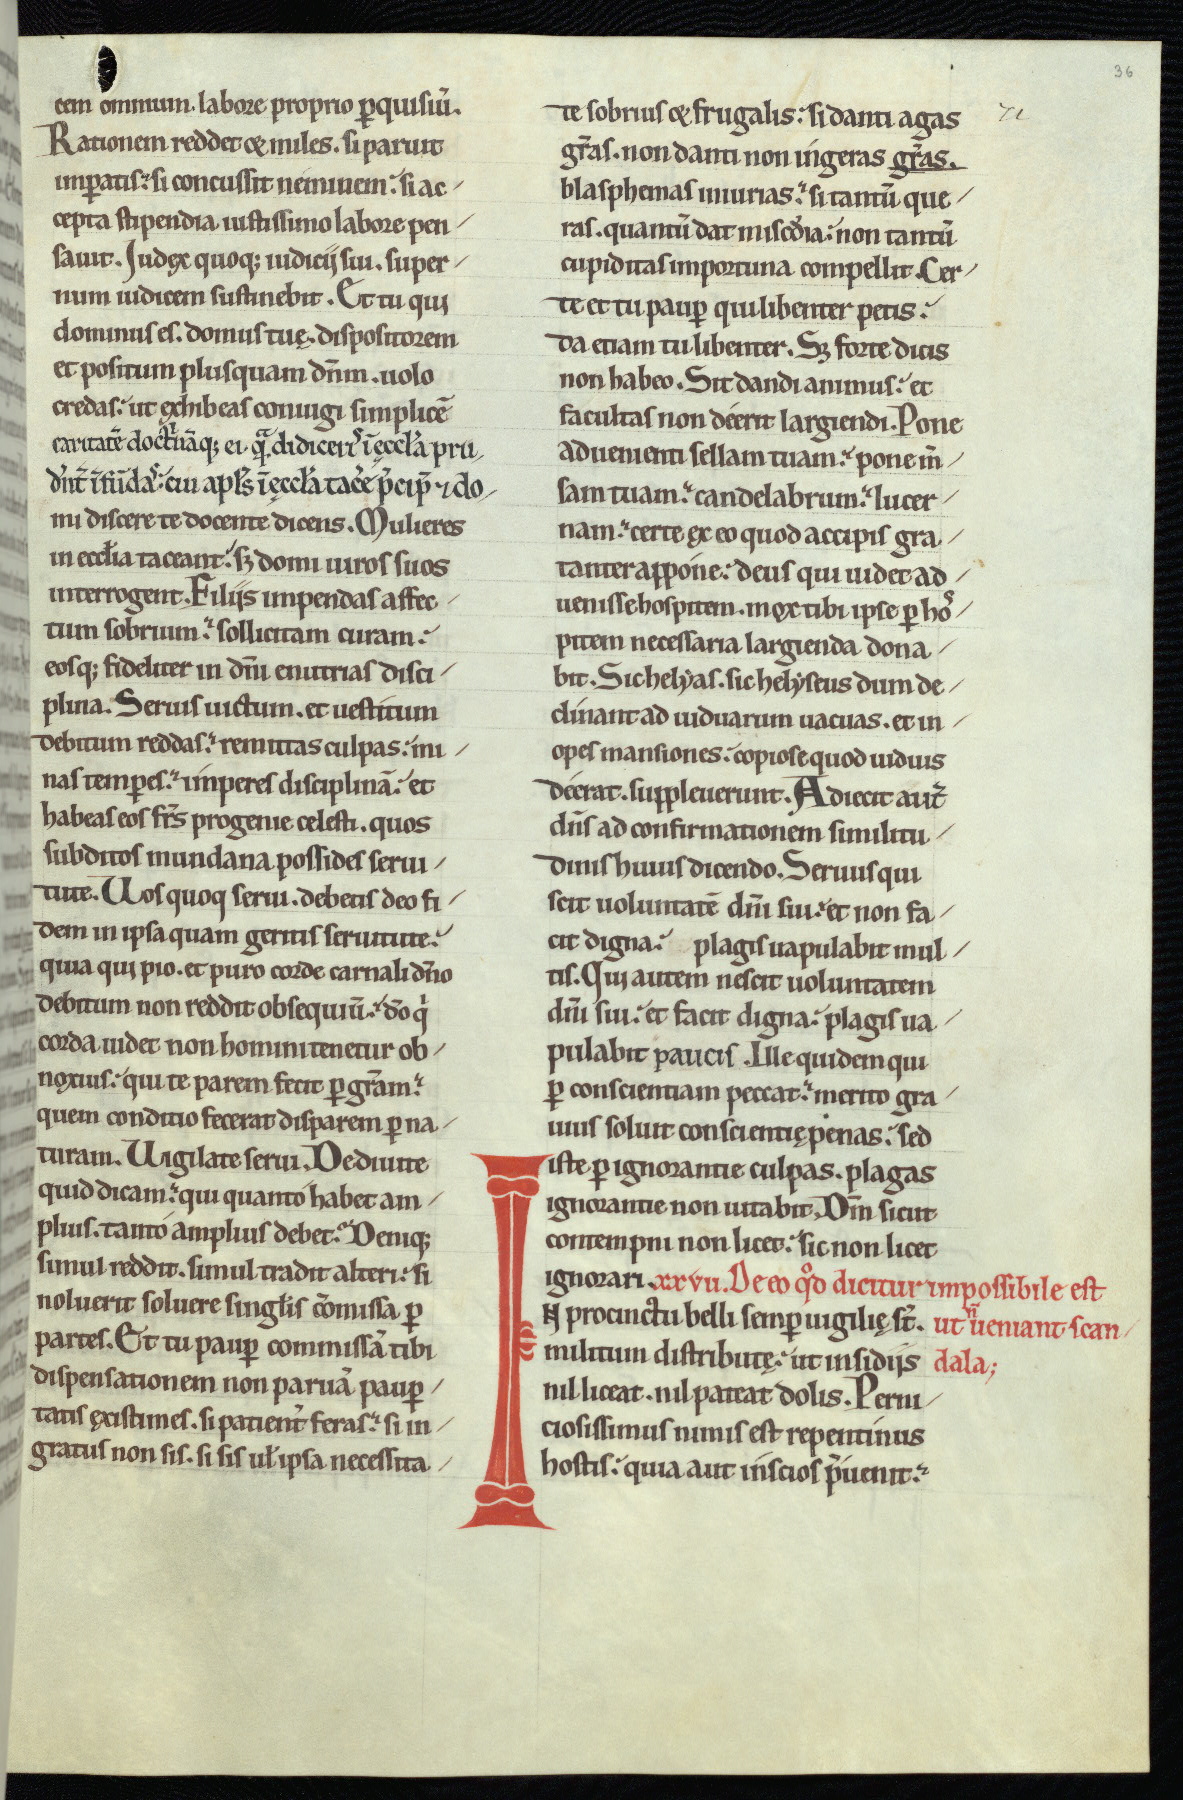 36
71
eem omnium. labore proprio ꝑquisiuͬ.
Rationem reddet & miles. si paruit
imꝑatis: si concussit neminem: si ac⸗
cepta stipendia iustissimo labore pen⸗
sauit. Judex quoq; iudicij sui. super⸗
num iudicem sustinebit. Et tu qui
dominus es. domus tuę. dispositorem
et positum plusquam dn̄m. uolo
credas: ut exhibeas coniugi simplicē
caritatē
mi discere te docente dicens. Mulieres
in eccl̄ia taceant: sꝫ domi uiros suos
interrogent. Filijs impendas affec⸗
tum sobrium: sollicitam curam:
eosq; fideliter in dn̄i enutrias disci⸗
plina. Seruis uictum. et uestitum
debitum reddas: remittas culpas: mi⸗
nas temꝑes: imperes disciplinā: et
habeas eos fr̄s progenie celesti. quos
subditos mundana possides serui⸗
tute. Uos quoq serui. debetis deo fi⸗
dem in ipsa quam geritis seruitute:
quia qui pio. et puro corde carnali dn̄o
debitum non reddit obsequiū: dō qͥ
corda uidet non homini tenetur ob⸗
noxius: qui te parem fecit ꝑ gr̄am:
quem conditio fecerat disparem ꝑ na⸗
turam. Uigilate serui. De diuite
quid dicam: qui quanto habet am⸗
plius. tanto amplius debet: Deniq;
simul reddit. simul tradit alteri: si
noluerit soluere singlis cōmissa ꝑ
partes. Et tu pauꝑ commissā tibi
dispensationem non paruā pauꝑ⸗
tatis existimes. si patient᷑ feras: si in⸗
gratus non sis. si sis uł ipsa necessita⸗
te sobrius & frugalis: si danti agas
gr̄as. non danti non ingeras gr̄as.
blasphemas iniurias: si tantū que⸗
ras. quantū dat misc̄dia: non tantū
cupiditas importuna compellit. Cer⸗
te et tu pauꝑ qui libenter petis:
da etiam tu libenter. Sꝫ forte dicis
non habeo. Sit dandi animus: et
facultas non deerit largiendi. Pone
aduenienti sellam tuam: pone m̄⸗
sam tuam: candelabrum: lucer⸗
nam: certe ex eo quod accipis gra⸗
tanter appone: deus qui uidet ad⸗
uenisse hospitem. mox tibi ipse ꝑ hoˢ⸗
pitem necessaria largienda dona⸗
bit. Sic helyas. sic helyseus dum de⸗
clinant ad uiduarum uacuas. et in⸗
opes mansiones: copiose quod uiduis
deerat. suppleuerunt. Adiecit aut᷑
dn̄s ad confirmationem similitu⸗
dinis huius dicendo. Seruus qui
scit uoluntatē dn̄i sui: et non fa⸗
cit digna: plagis uapulabit mul⸗
tis. Qui autem nescit uoluntatem
dn̄i sui: et facit digna: plagis ua⸗
pulabit paucis. Ille quidem qui
ꝑ conscientiam peccat: merito gra⸗
uius soluit conscientię penas: sed
iste ꝑ ignorantie culpas. plagas
ignorantie non uitabit. Dn̄m sicut
contempni non licet: sic non licet
ignorari. xxvii. De eo qͦd dicitur impossibile est
ut n̄ ueniant scan⸗
dala;
IN procinctu belli semꝑ uigilię st̄.
militum distributę: ut insidijs
nil liceat. nil pateat dolis. Perni⸗
ciosissimus nimis est repentinus
hostis: quia aut inscios p̄uenit: